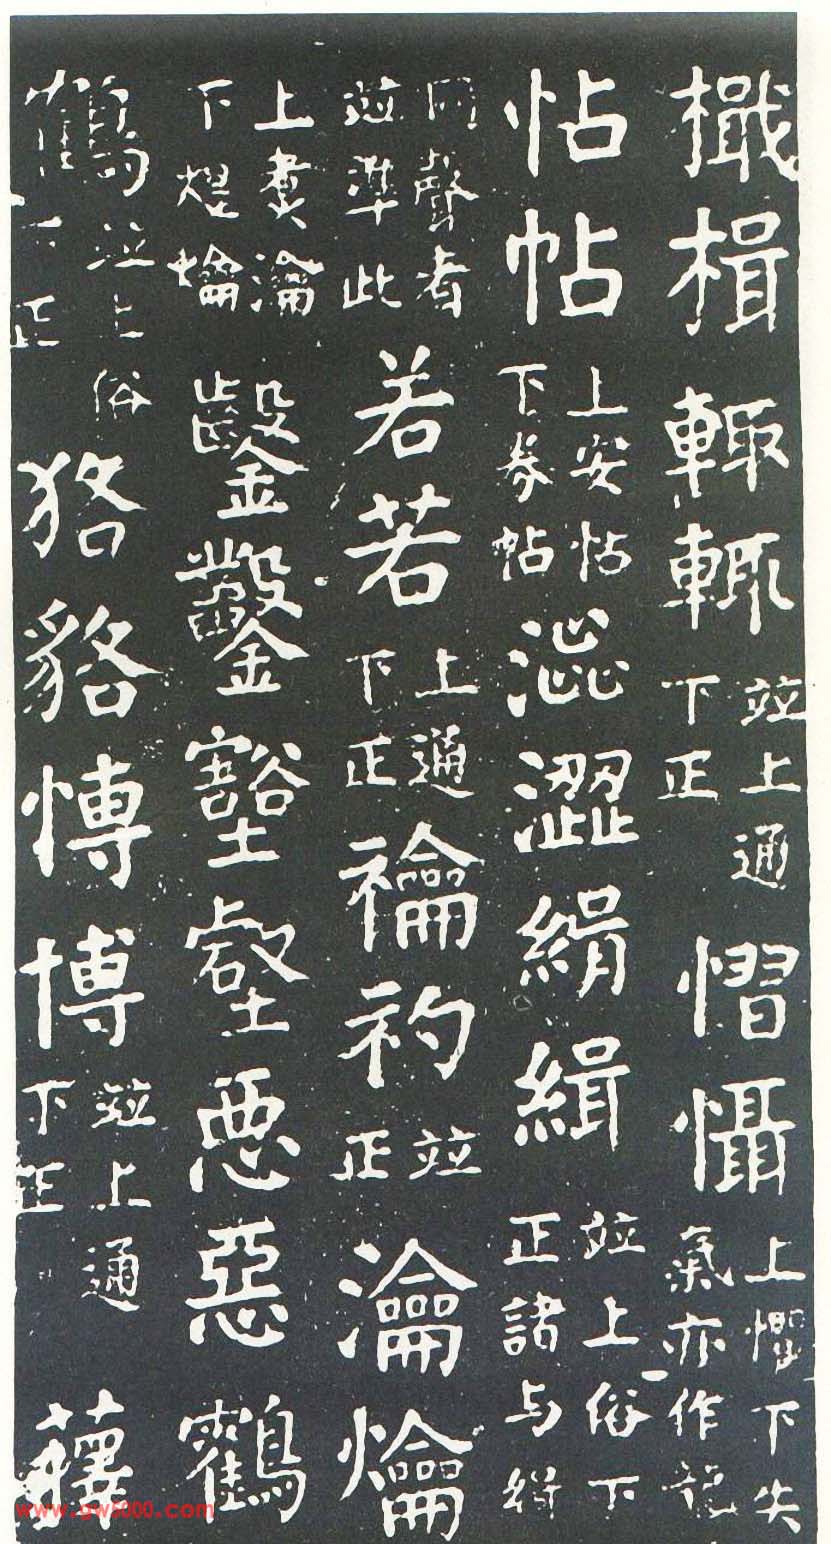 檝楫輙輒並上通下正慴懾上懼下失氣亦作
怗帖上安怗下券帖澁澀縎緝並上俗下正諸与緝
同聲者並準此若若上通下正禴礿並正瀹爚
上煑瀹下煜爚鑿鑿壑壑悪惡鸖
鶴並上俗下正狢貉愽博並上通下正
www.gw5000.com